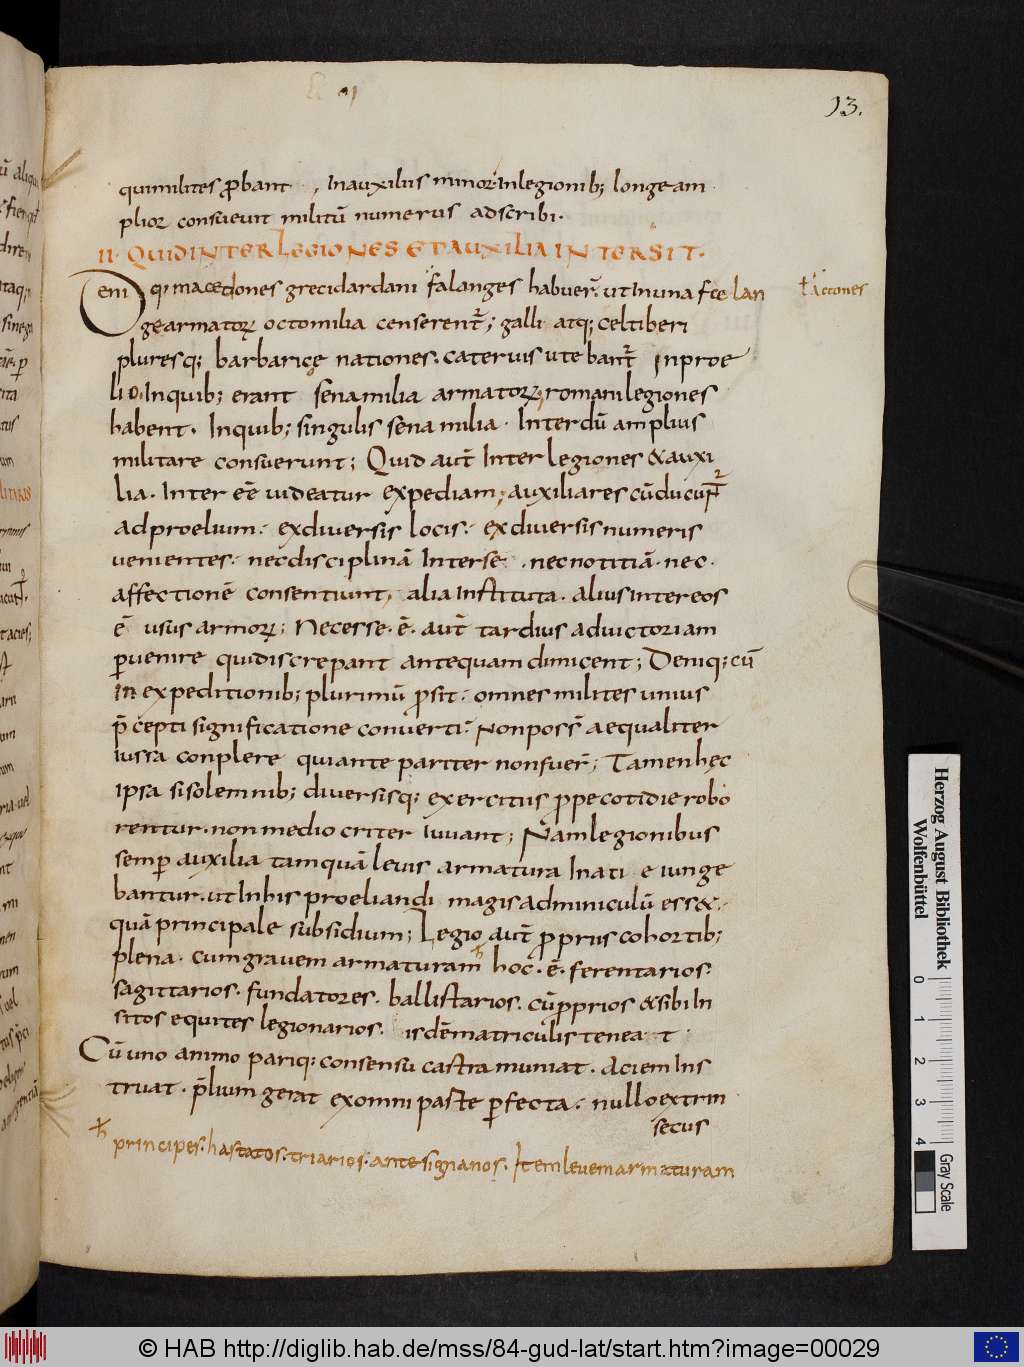 13.
qui milites ꝓbant , In auxiliis minor In legionib; longe am
plior consuevit militū numerus adscribi.
II. QUID INTER LEGIONES ET AUXILIA INTERSIT.
Deniq; macedones greci dardani falanges habuer̄. ut In una
ge armatoꝝ octo milia censerent; galli atq; celtiberi
pluresq; barbarice nationes. catervis utebant In proe
lio. In quib; erant sena milia armatoꝝ; romani legiones
habent. In quib; singulis sena milia. Interdū amplius
militare consuerunt; Quid aut̄ Inter legiones & auxi
lia. Inter eē videatur expediam; auxiliares cū ducunt̄
ad proelium. ex diversis locis. ex diversis numeris
venientes. nec disciplinā Inter se. nec notitiā. nec.
affectionē consentiunt, alia Instituta. alius Inter eos
ē usus armoꝝ; Necesse. ē. aut̄ tardius ad victoriam
ꝑvenire qui discrepant antequam dimicent; Deniq; cū
In expeditionib; plurimū ꝓsit. omnes milites unius
p̄cepti significatione converti. Non poss̄ aequaliter
iussa conplere qui ante pariter non fuer̄; Tamen hęc
Ipsa si solemnib; diversisq; exercitiis ꝓpe cotidie robo
rentur. non mediocriter iuvant; Nam legionibus
semꝑ auxilia tamquā levis armatura In ati e iunge
bantur. ut In his proeliandi magis adminiculū ess&.
quā principale subsidium; Legio aut̄ ꝓpriis cohortib;
plena. cum gravem armaturam hoc. ē. ferentarios.
sagittarios. fundatores. ballistarios. cū ꝓprios & sibi In
sitos equites legionarios. isdē matriculis tenea t
Cū uno animo pariq; consensu castra muniat. Aciem Ins
truat. p̄lium gerat ex omni paste ꝑfecta. nullo extrin
secus
principes. hastatos. triarios. antesignanos. Item levem armaturam
Herzog August Bibliothek
Wolfenbüttel
0 1 2 3 4
Gray Scale
© HAB http://diglib.hab.de/mss/84-gud-lat/start.htm?image=00029